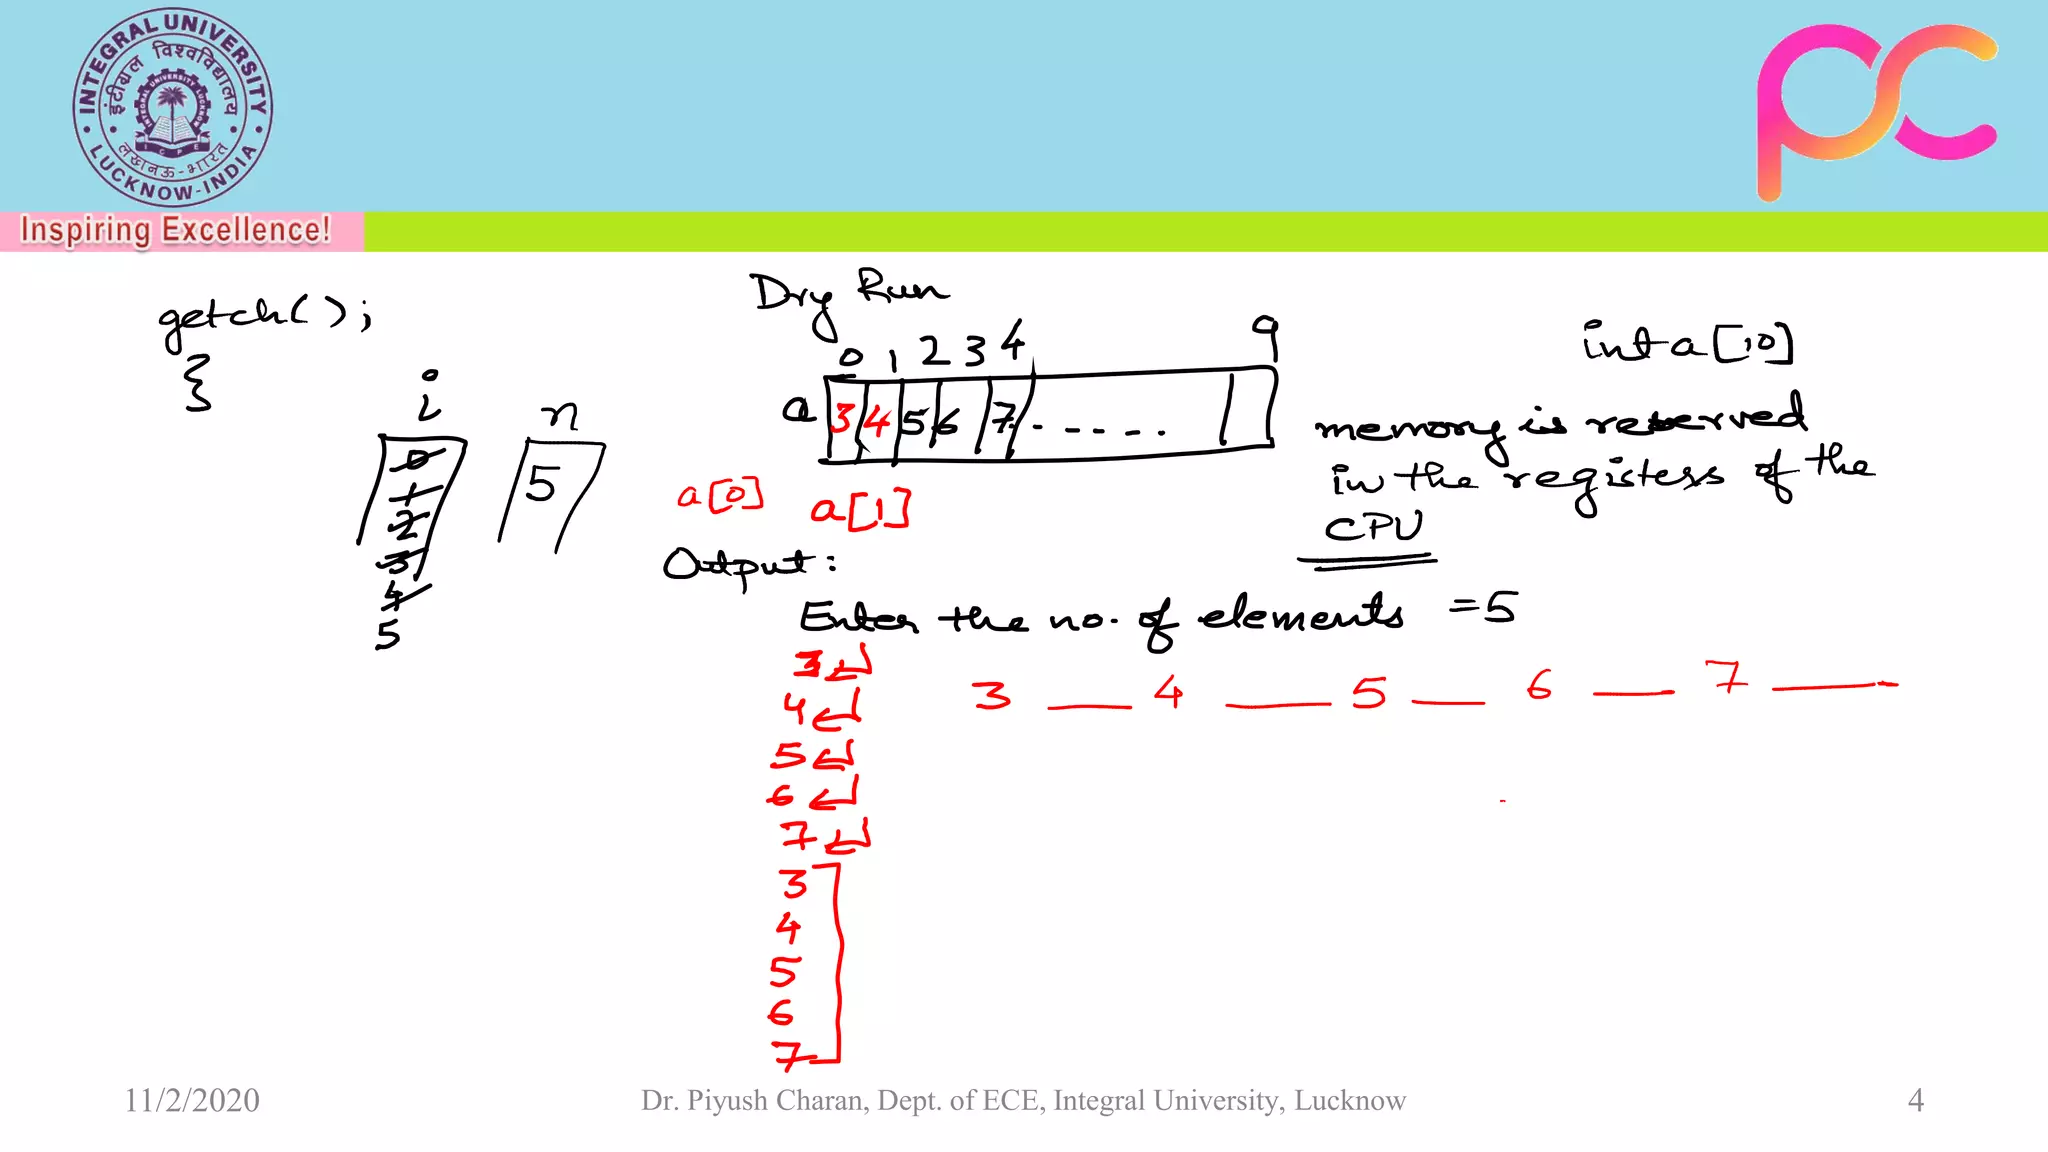 INTEGRAL UNIVERSITY
इंटीग्रल विश्वविद्यालय
लखनऊ - भारत
LUCKNOW-INDIA
Inspiring Excellence!
PC
getch();
}
Dry Run
0 1 2 3 4 9
a 3 4 5 6 7 . - - - - .
a[0] a[1]
int a[10]
memory is reserved
in the registers of the
CPU
i n
0 5
1
2
3
4
5
Output:
Enter the no. of elements = 5
3 ↵
4 ↵
5 ↵
6 ↵
7 ↵
3 __ 4 __ 5 __ 6 __ 7 __
3
4
5
6
7
11/2/2020
Dr. Piyush Charan, Dept. of ECE, Integral University, Lucknow
4